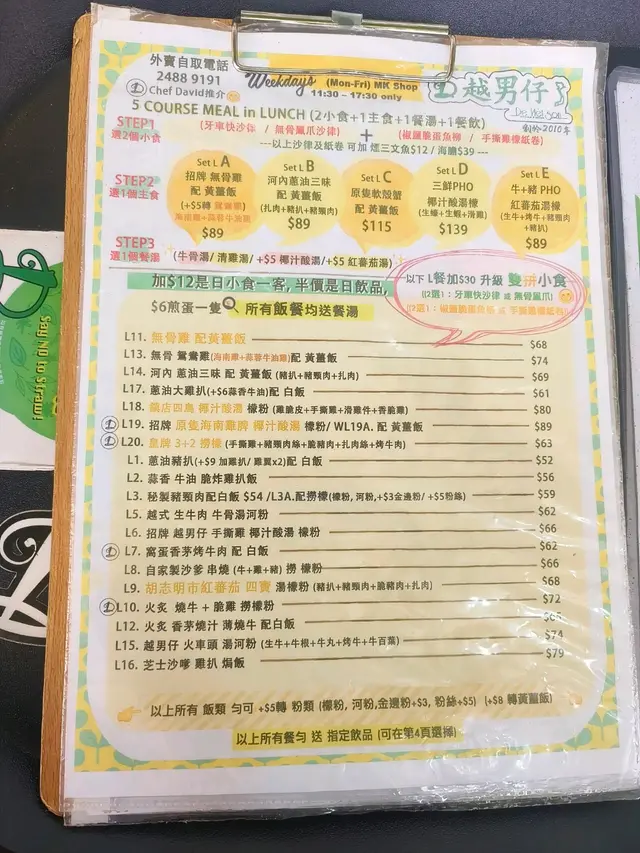 外賣自取電話
2488 9191
Chef David推介
Weekdays (Mon-Fri) MK Shop
11:30 – 17:30 only
越男仔
創於2010年
5 COURSE MEAL in LUNCH (2小食+1主食+1餐湯+1餐飲)
STEP1
選2個小食
(牙車快沙律 / 無骨鳳爪沙律) + (椒鹽脆蛋魚柳 / 手撕雞檬紙卷)
---以上沙律及紙卷 可加 煙三文魚$12 / 海膽$39 ---
STEP2
選1個主食
Set L A
招牌 無骨雞
配 黃薑飯
(+$5轉 鴛鴦雞)
海南雞+蒜蓉牛油雞
$89
Set L B
河內蔥油三味
配 黃薑飯
(扎肉+豬扒+豬頸肉)
$89
Set L C
原隻軟殼蟹
配 黃薑飯
$115
Set L D
三鮮PHO
椰汁酸湯檬
(生蠔+生蝦+滑雞)
$139
Set L E
牛+豬 PHO
紅蕃茄湯檬
(生牛+烤牛+豬頸肉
+豬扒)
$89
STEP3
選1個餐湯
(牛骨湯/ 清雞湯/ +$5 椰汁酸湯/+$5 紅蕃茄湯)
加$12是日小食一客, 半價是日飲品,
$6煎蛋一隻 所有飯餐均送餐湯
以下 L餐加$30 升級 雙拼小食
(2選1：牙車快沙律 或 無骨鳳爪)
(2選1：椒鹽脆蛋魚柳 或 手撕雞檬紙卷)
L11. 無骨雞 配 黃薑飯 $68
L13. 無骨 鴛鴦雞(海南雞+蒜蓉牛油雞)配 黃薑飯 $74
L14. 河內 蔥油三味 配 黃薑飯 (豬扒+豬頸肉+扎肉) $69
L17. 蔥油大雞扒(+$6蒜香牛油)配 白飯 $61
L18. 藥店四鳥 椰汁酸湯 檬粉 (雞脆皮+手撕雞+滑雞件+香脆雞) $80
L19. 招牌 原隻海南雞髀 椰汁酸湯 檬粉/ WL19A. 配 黃薑飯 $89
L20. 皇牌 3+2 撈檬 (手撕雞+豬頸肉絲+脆豬肉+扎肉絲+烤牛肉) $63
L1. 蔥油豬扒(+$9 加雞扒/ 雞翼x2)配 白飯 $52
L2. 蒜香 牛油 脆炸雞扒飯 $56
L3. 秘製豬頸肉配白飯 $54 /L3A.配撈檬(檬粉, 河粉,+$3金邊粉/ +$5粉絲) $59
L5. 越式 生牛肉 牛骨湯河粉 $62
L6. 招牌 越男仔 手撕雞 椰汁酸湯 檬粉 $66
L7. 窩蛋香茅烤牛肉 配 白飯 $62
L8. 自家製沙爹 串燒 (牛+雞+豬) 撈 檬粉 $66
L9. 胡志明市紅蕃茄 四寶 湯檬粉 (豬扒+豬頸肉+脆豬肉+扎肉) $68
L10. 火炙 燒牛 + 脆雞 撈檬粉 $72
L12. 火炙 香茅燒汁 薄燒牛 配白飯
L15. 越男仔 火車頭 湯河粉 (生牛+牛根+牛丸+烤牛+牛百葉) $74
L16. 芝士沙嗲 雞扒 焗飯 $79
以上所有 飯類 勻可 +$5轉 粉類 (檬粉, 河粉,金邊粉+$3, 粉絲+$5) (+$8 轉黃薑飯)
以上所有餐勻 送 指定飲品 (可在第4頁選擇)
Say No to Straw!